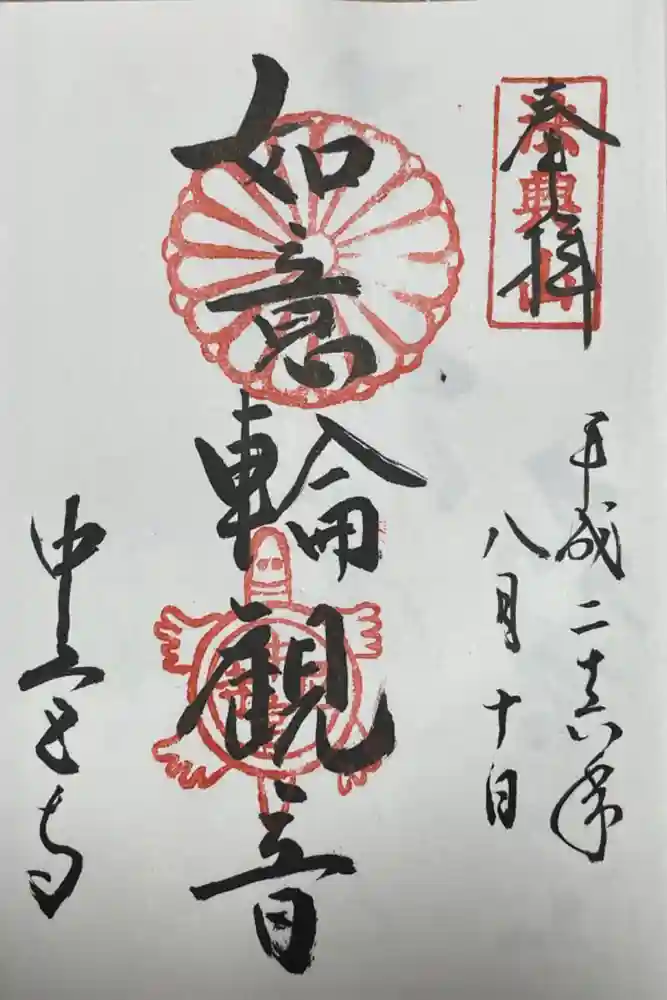 奉拝
法興山
平成二十六年
八月十日
如意輪観音
中宮寺